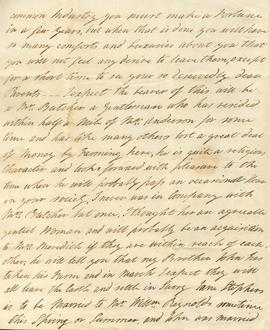 common Industry you must make a Fortune
in a few Years, but when that is done you will have
so many comforts and Luxuries about you that
you will not feel any desire to leave them, except
for a short time to see your so Deservedly dear
Parents — I expect the bearer of this will be
a Mr. Butcher a Gentleman who has resided
within half a Mile of Mr. Anderson for some
time and has like many others lost a great deal
of Money by Farming here, he is quite a religious
Character and looks forward with pleasure to the
time when he will probably pass an occasional Hour
in your society, I never was in Company with
Mrs. Butcher but once, I thought her an agreeable
genteel Woman and will probably be an acquisition
to Mrs. Meredith if they are within reach of each
other, he will tell you that my Brother John has
taken his Farm and in March I expect they will
all leave the Castle and settle in Jane Stephens
is to be Married to Mr. Willm. Reynolds sometime
this Spring or Summer and John was married